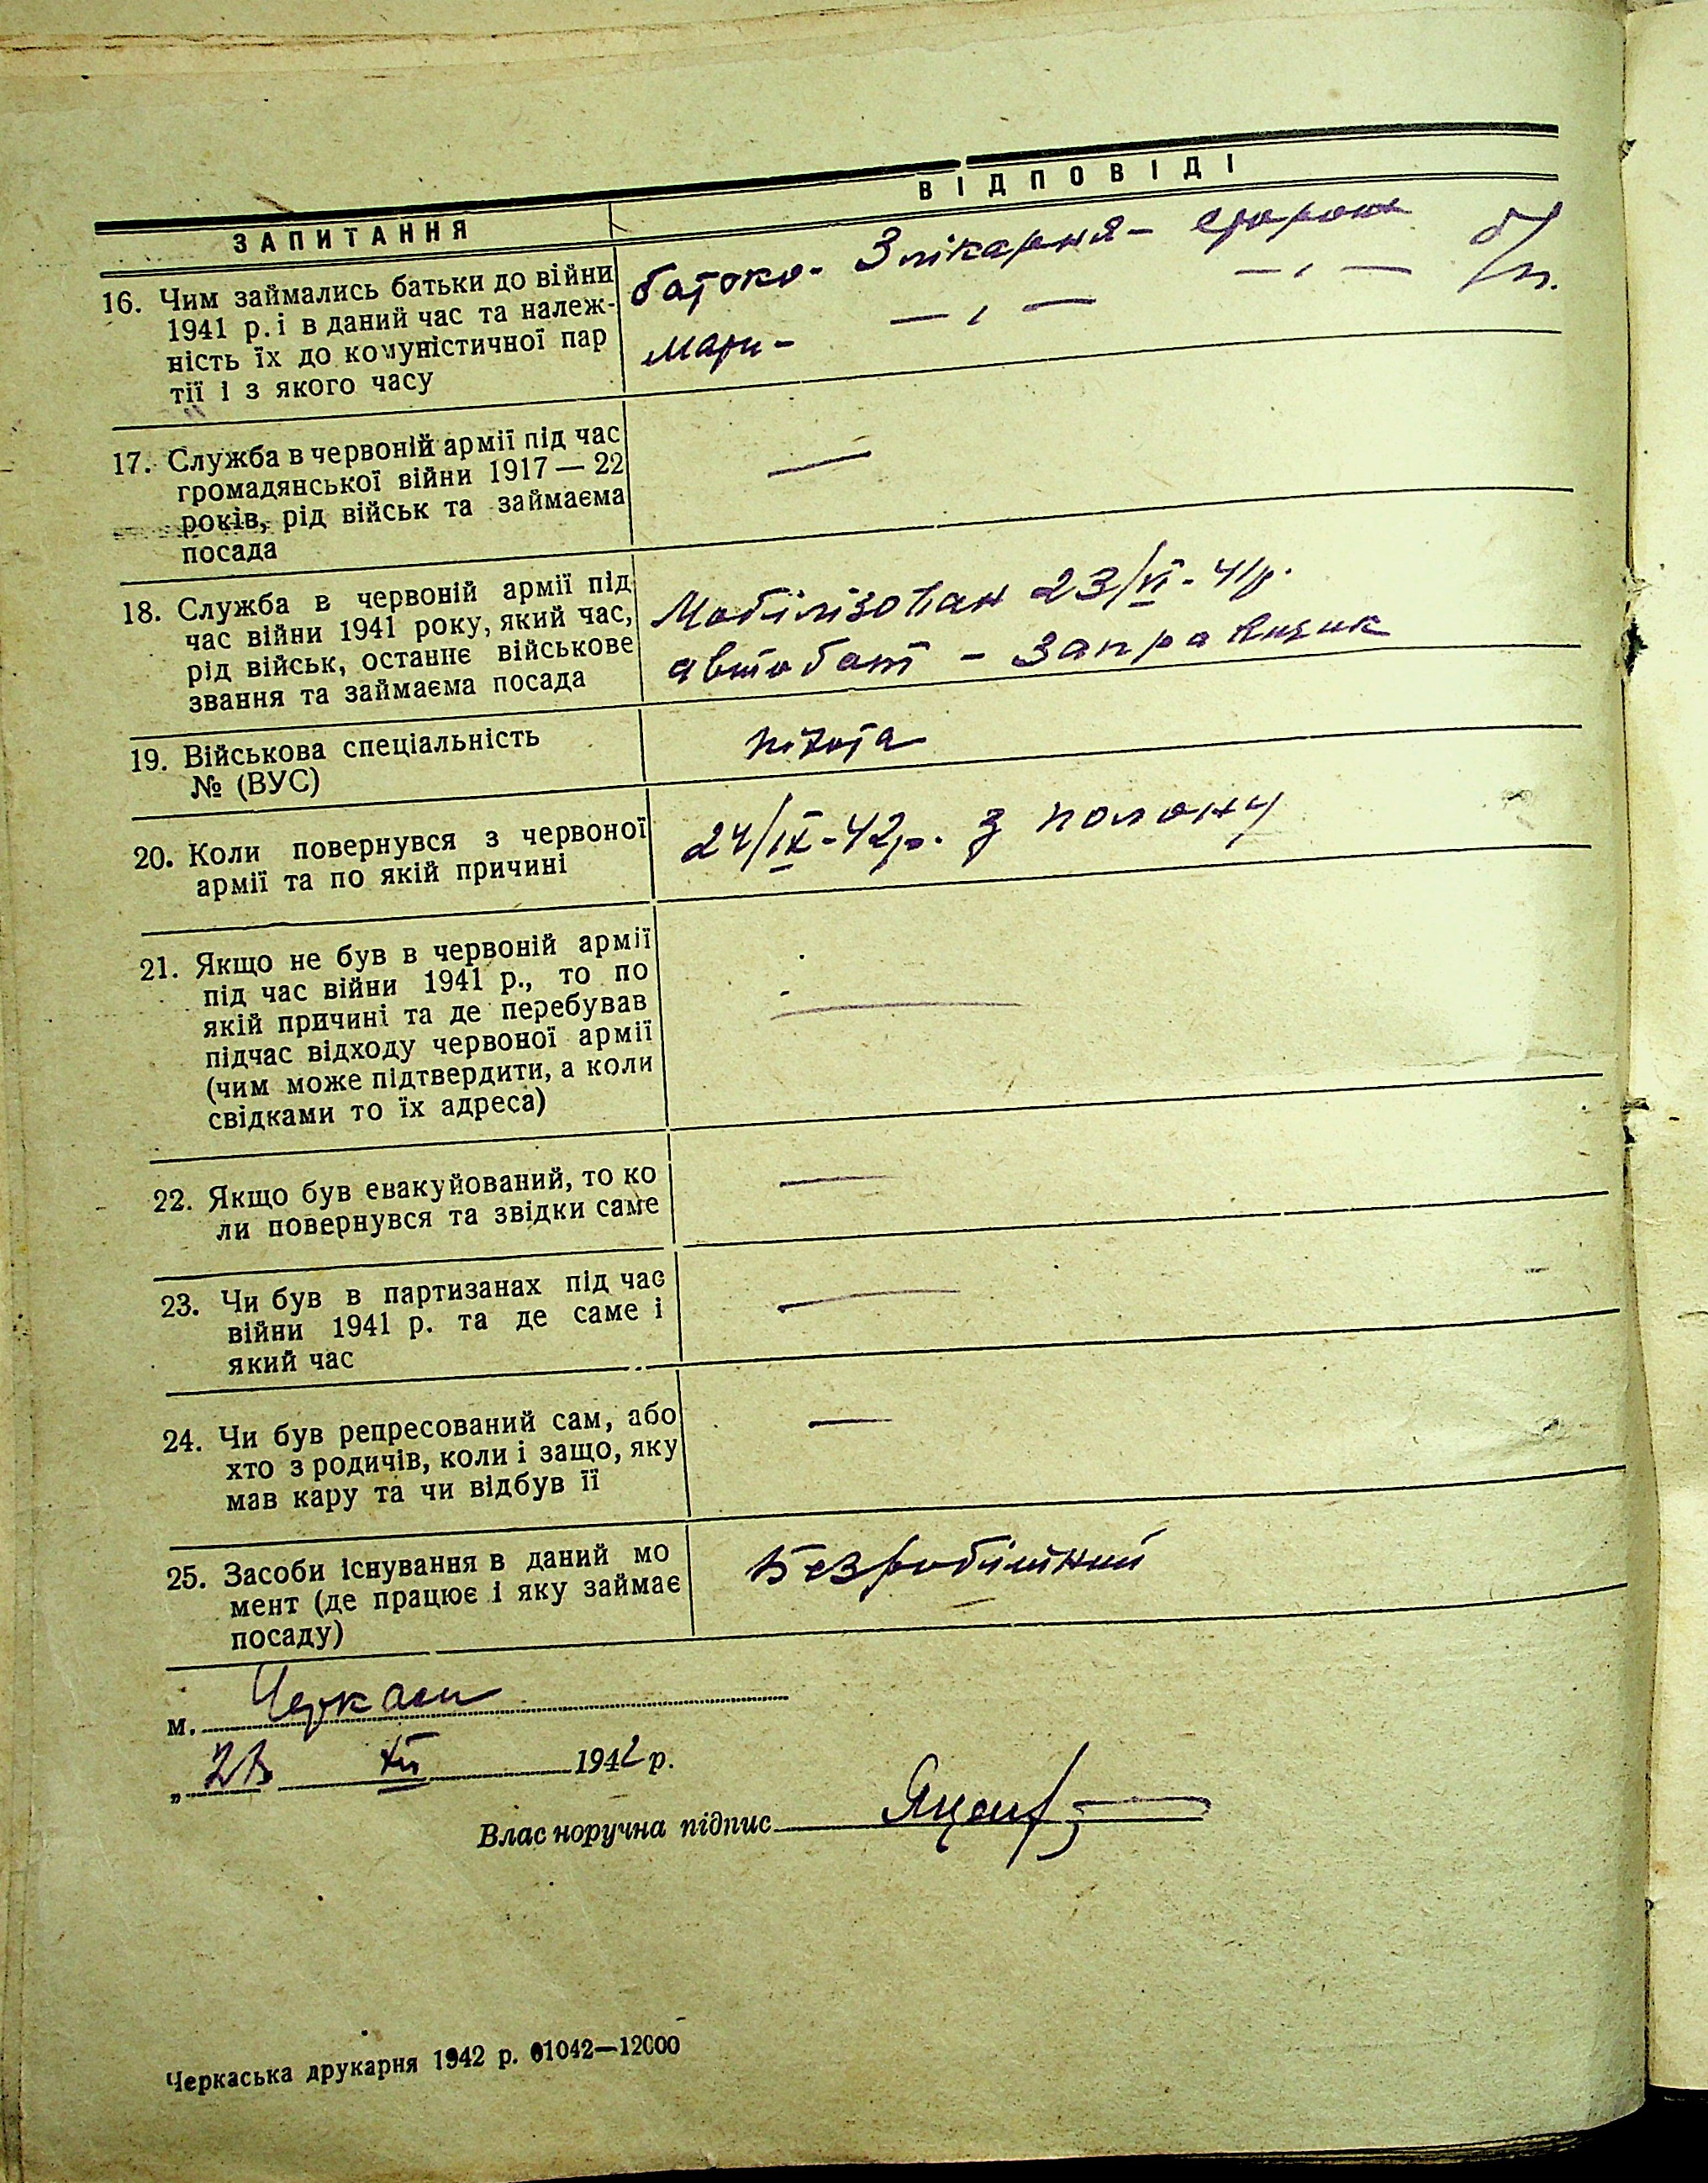 ВІДПОВІДІ
ЗАПИТАННЯ
16. Чим займались батьки до війни
1941 р. і в даний час та належ-
ність їх до комуністичної пар
тії і з якого часу
батько - Злікарня - сторож б/п.
мати - — „ — — „ —
17. Служба в червоній армії під час
громадянської війни 1917 — 22
років, рід військ та займаєма
посада
—
18. Служба в червоній армії під
час війни 1941 року, який час,
рід військ, останнє військове
звання та займаєма посада
Мобілізован 23/VI - 41р.
автобат - Заправщик
19. Військова спеціальність
№ (ВУС)
піхота
20. Коли повернувся з червоної
армії та по якій причині
24/IX - 42р. з полону
21. Якщо не був в червоній армії
під час війни 1941 р., то по
якій причині та де перебував
підчас відходу червоної армії
(чим може підтвердити, а коли
свідками то їх адреса)
—
22. Якщо був евакуйований, то ко
ли повернувся та звідки саме
—
23. Чи був в партизанах під час
війни 1941 р. та де саме і
який час
—
24. Чи був репресований сам, або
хто з родичів, коли і защо, яку
мав кару та чи відбув її
—
25. Засоби існування в даний мо
мент (де працює і яку займає
посаду)
Безробітний
м. Черкаси
„ XII 1942 р.
Власноручна підпис
Черкаська друкарня 1942 р. 01042—12000